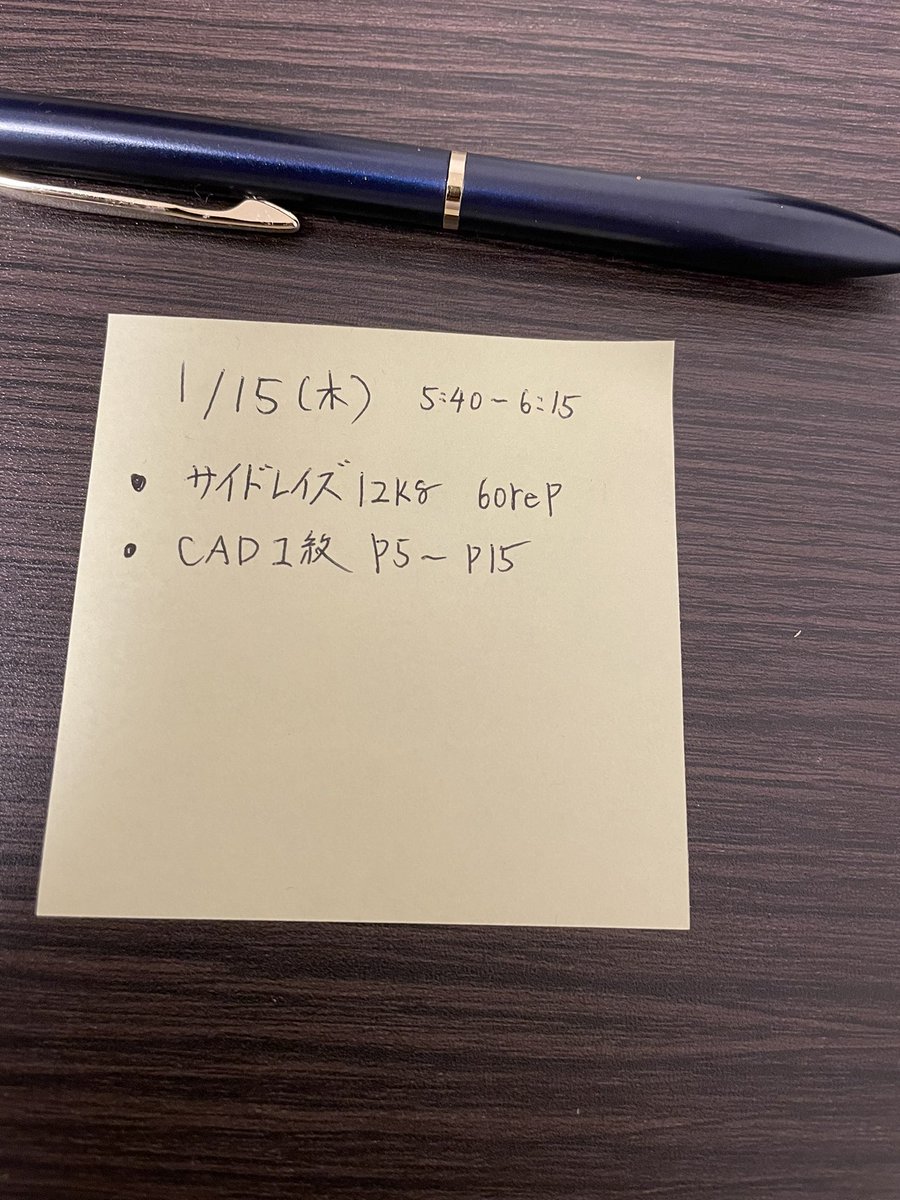 1/15(木) 5:40~6:15
• サイドレイズ 12kg 60rep
• CAD1級 P5~P15